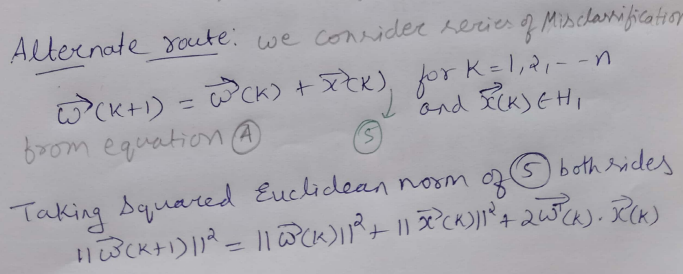 Alternate route: we consider series of Misclassification
w⃗(K+1) = w⃗(K) + x⃗(K), for K=1,2,--n
and x⃗(K) ∈ H₁
from equation (4) (5)
Taking Squared Euclidean norm of (5) both sides
||w⃗(K+1)||² = ||w⃗(K)||² + ||x⃗(K)||² + 2w⃗ᵀ(K). x⃗(K)